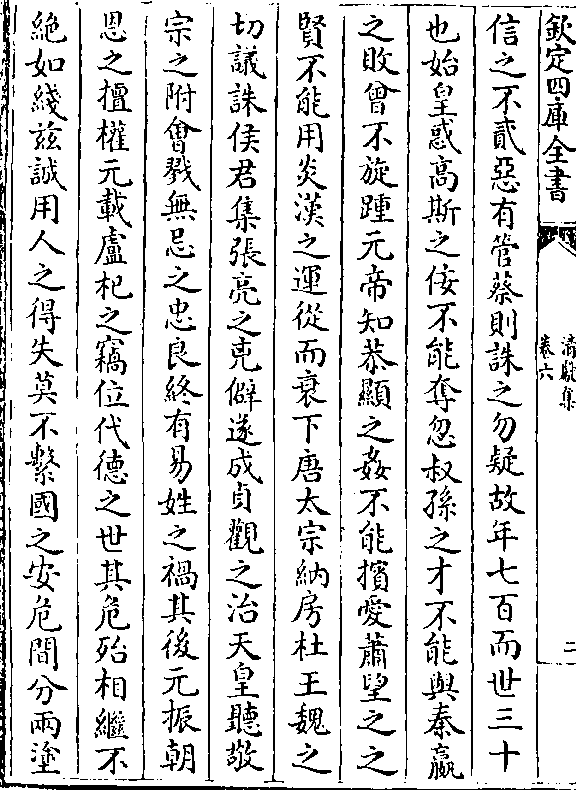 欽定四庫全書
清獻集
卷六
二
信之不貳惡有管蔡則誅之勿疑故年七百而世三十
也始皇惑高斯之佞不能奪忽叔孫之才不能與秦嬴
之敗曾不旋踵元帝知恭顯之姦不能擯愛蕭望之之
賢不能用炎漢之運從而衰下唐太宗納房杜王魏之
切議誅侯君集張亮之克僻遂成貞觀之治天皇聽敬
宗之附會戮無忌之忠良終有易姓之禍其後元振朝
恩之擅權元載盧杞之竊位代德之世其危殆相繼不
絶如綫兹誠用人之得失莫不繫國之安危間分兩塗